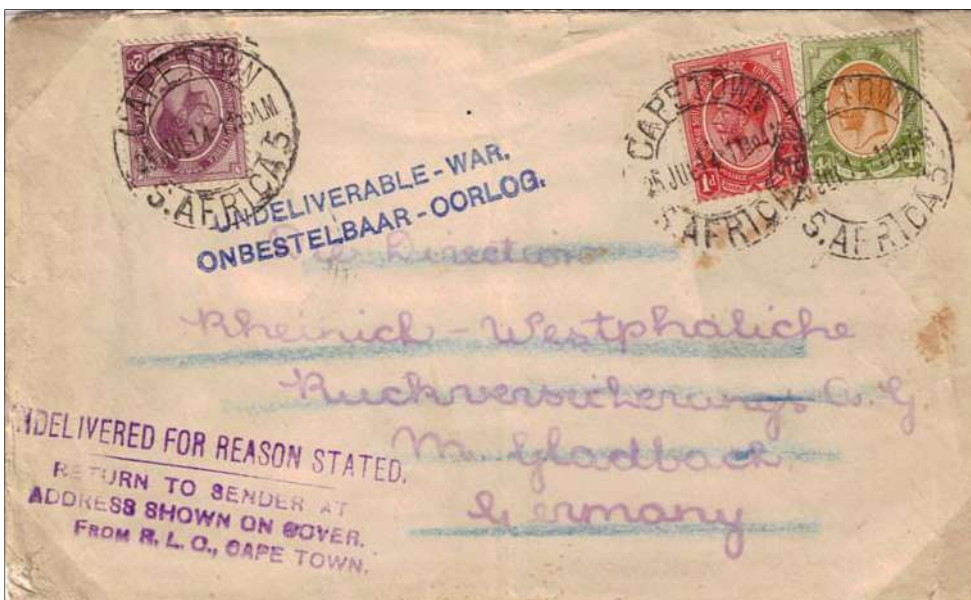 CAPETOWN
25 JUL 14
S.AFRICA 5
2½d
CAPETOWN
25 JUL 14 11 30 AM
S.AFRICA
1d
TOWN
S.AFRICA 5
4d
UNDELIVERABLE-WAR.
ONBESTELBAAR-OORLOG.
Die Direction
Rheinich - Westphaliche
Ruckversicherungs A. G.
M. Gladbach
Germany
NDELIVERED FOR REASON STATED.
RETURN TO SENDER AT
ADDRESS SHOWN ON COVER.
FROM R. L. O., CAPE TOWN.